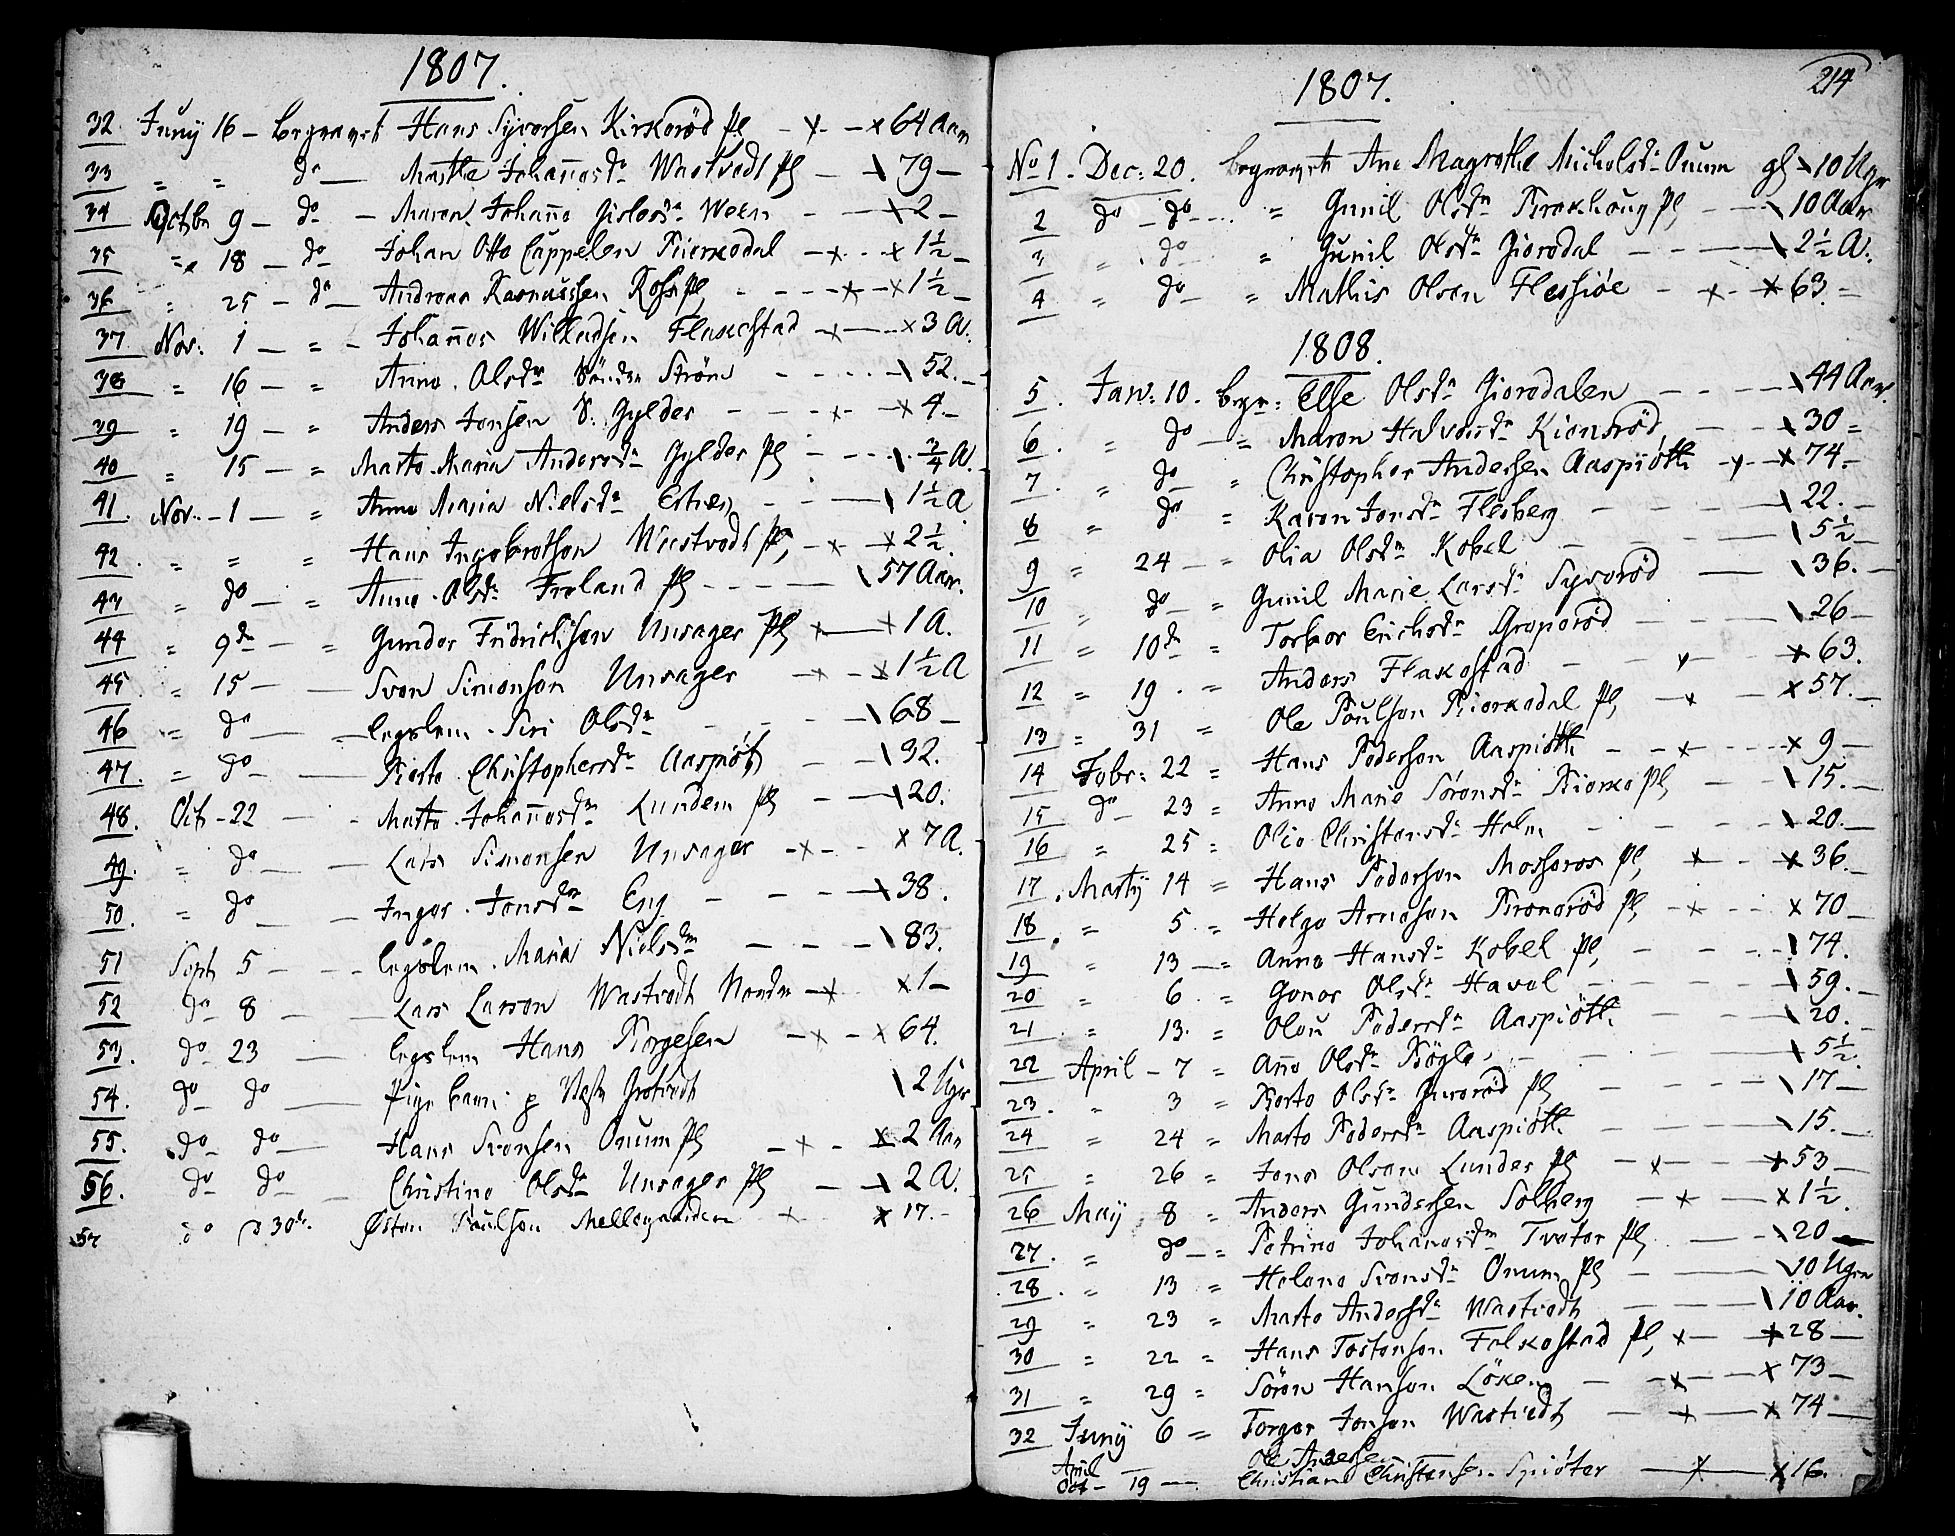 1807.
32. Juny 16 - begravet Hans Syversen Kirkerød Pl - x - x 64 Aar
33 = = do — Marthe Johañesdr Wastvedt Pl — \ 79 —
34 Octbr 9 — do — Maren Johañe Gislesdr Ween - — \ 2 —
35 = 18 — do Johan Otto Cappelen Kierkedal — x - x 1½ —
36 = 25 — do — Andreas Rasmussen Pl - - - x — x 1½ —
37 Nov: 1 — = — Johañes Wilhadsen Flakestad — x — x 3 A.
38 = 16 — = Anne Olsdr Söndre Ström - - - - \ 52. —
39 = 19 — = Anders Jonsen S. Gylder - - - x - x 4 —
40 = 15 — = Marte Maria Andersdr Gylder Pl - - - \ ¾ A.
41. Nov. - 1 — = Anne Maria Nielsdr - - — \ 1½ A
42. = = = Hans Ingebretsen Wastvedt Pl, — x x 2½.
43 = do — = Anne Olsdr Froland Pl - - - — \ 57 Aar.
44 = 9de — = Gunder Fridrichsen Unsager Pl x — x 1 A.
45 = 15 — — Sven Simonsen Unsager — x — x 1½ A
46 = do — — legslem Siri Olsdr - - - — \ 68 —
47. = do — — Kierste Christophersdr Aaspiøt - - \ 32.
48. Oct - 22 — - Marte Johañesdr Lundem Pl - — \ 20.
49. = do — — Lars Simonsen Unsager — x — - x 7 A.
50. = do — Inger Jonsdr Eng - - — \ 38.
51 Sept 5 — - - legslem Maria Nielsdr — — — \ 83.
52 do 8 — — Lars Larsen Wastvedt Nordre — x x 1 —
53. do 23 — legslem Hans Borgesen — x - x 64.
54. do do — Pige barn p \ 2 Uger
55. do do — Hans Svensen Onum Pl — x — x 2 Aar
56. do do — Christine Olsdr Unsager Pl — \ 2 A.
57 do 30te. Østen Poulsen Mellegaarden x - x 17. -
214
1807.
No 1. Dec: 20. begravet Ane Magrethe Michelsdr Onum gl \ 10 Uger
2 do — do — = Gunil Olsdr Pl - - - \ 10 Aar
3 = do = Gunil Olsdr Giersdal - - — \ 2½ A.
4 = do — = Mathis Olsen Flessiøe - x - x 63. =
1808.
5. Jan: 10. begr: Else Olsdr Giersdalen — - - — \ 44 Aar.
6. = do — = Maren Halvorsdr Kiensrød - - \ 30 =
7. = do — = Christopher Andersen Aaspiøtt - x - x 74. -
8 = do = Karen Jonsdr Flesberg - - - \ 22. -
9 = 24 — = Olia Olsdr Kobel - - - \ 5½
10 = do — = Gunil Marie Larsdr Syverød — \ 36. —
11 = 10de = Torbor Erichsdr Graperød - - - \ 26 —
12 = 19. = Anders Flakestad - - x — x 63.
13 = 31 = Ole Poulsen Kierkedal Pl, — x — x 57. —
14 Febr: 22 = Hans Pedersen Aaspiøtt - - x - - - x 9 —
15 do 23 = Anne Marie Sörensdr Pl, - - \ 15. —
16 = 25 = Olia Christensdr Holm - - - \ 20. —
17. Marty 14 = Hans Pedersen Mosseros Pl, x - - x 36. —
18. = 5. = Helge Arnesen Pl - x - x 70 —
19 = 13 — = Anne Hansdr Kobel Pl, - - - \ 74.
20 = 6. = Gunor Olsdr Havel - - - - \ 59. —
21 = 13. = Olou Pedersdr Aaspiøtt. - - - \ 20. —
22 April - 7 = Añe Olsdr Bögle. - - - \ 5½.
23. = 3 = Berte Olsdr Pl - - - \ 17 —
24 = 24 = Marte Pedersdr Aaspiøtt — - - \ 15. —
25 = 26 = Jens Olsen Lundes Pl — x — x 53 —
26 May 8 = Anders Gundersen Solberg — x — x 1½.
27. = do — = Petrine Johañesdr Tveter Pl, — - \ 20 —
28. = 13 = Helene Svensdr Onum Pl — — \ 10 Uger
29 = 23 = Marte Andersdr Wastvedt — — — \ 10 Aar.
30 = 22 = Hans Tostensen Falkestad Pl, x — x 28 —
31 = 29 = Sören Hansen Löken — x — x 73 —
32 Juny 6 = Torger Jonsen Wastvedt — x — x 74 —
Ole Andersen
April
Oct - 19 — Christian Christensen Spiøter — x — x 16.